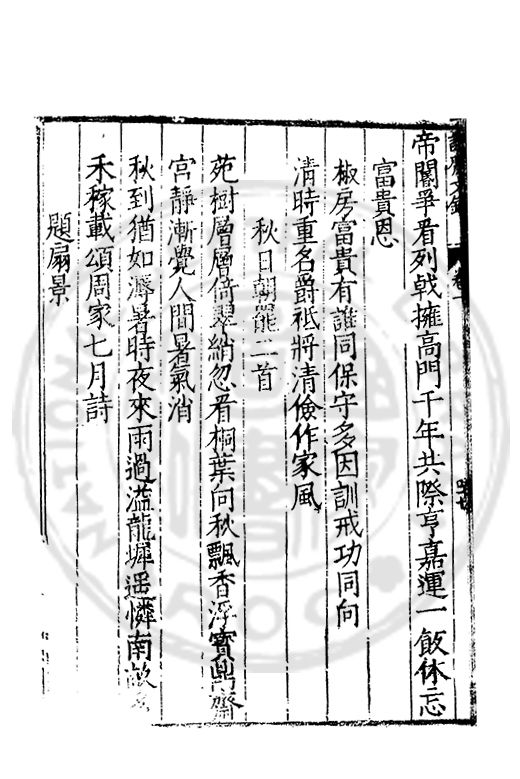 帝閽爭看列戟擁高門千年共際亨嘉運一飯休忘
富貴恩
椒房富貴有誰同保守多因訓戒功同向
清時重名爵祗將清儉作家風
秋日朝罷二首
苑樹層層倚翠綃忽看桐葉向秋飄香浮寶鼎齋
宮靜漸覺人間暑氣消
秋到猶如溽暑時夜來雨過溢龍墀遥憐南畝
禾稼載頌周家七月詩
題扇景